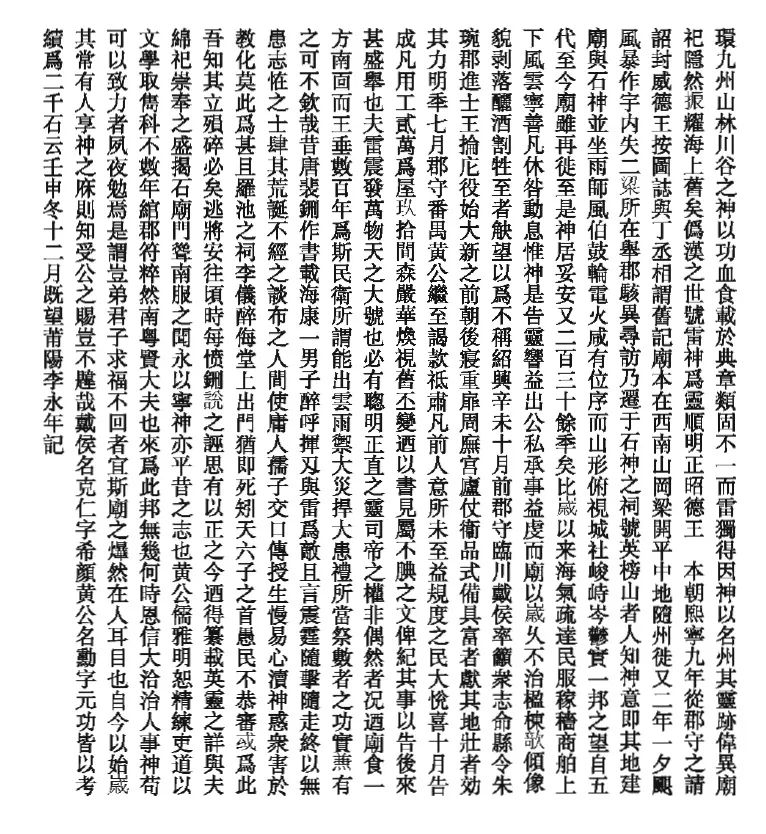 環九州山林川谷之神以功血食載於典章類固不一而雷獨得因神以名州其靈跡偉異廟
祀隱然振耀海上舊矣僞漢之世號雷神爲靈順明正昭德王　本朝熙寧九年從郡守之請
詔封威德王按圖誌與丁丞相謂舊記廟本在西南山岡梁開平中地隨州徙又二年一夕颶
風暴作宇内失二梁所在舉郡駭異尋訪乃遷于石神之祠號英榜山者人知神意即其地建
廟與石神並坐雨師風伯鼓輪電火咸有位序而山形俯視城社峻峙岑鬱實一邦之望自五
代至今廟雖再徙至是神居妥安又二百三十餘季矣比歲以来海氣疏達民服稼穡商舶上
下風雲寧善凡休咎動息惟神是告靈響益出公私承事益虔而廟以歲久不治楹棟欹傾像
貌剥落釃酒割牲至者觖望以爲不稱紹興辛未十月前郡守臨川戴侯率籲衆志命縣令朱
琬郡進士王掄庀役始大新之前朝後寢重扉周廡宫廬仗衞品式備具富者獻其地壯者効
其力明季七月郡守番禺黃公繼至謁款祗肅凡前人意所未至益規度之民大悅喜十月告
成凡用工貳萬爲屋玖拾間森嚴華焕視舊丕變迺以書見屬不腆之文俾紀其事以告後來
甚盛舉也夫雷震發萬物天之大號也必有聰明正直之靈司帝之權非偶然者况迺廟食一
方南面而王垂數百年爲斯民衞所謂能出雲雨禦大災捍大患禮所當祭數者之功實焘有
之可不欽哉昔唐裴鉶作書載海康一男子醉呼揮刄與雷爲敵且言震霆隨擊隨走終以無
患志恠之士肆其荒誕不經之談布之人間使庸人孺子交口傳授生慢易心瀆神惑衆害於
教化莫此爲甚且羅池之祠李儀醉侮堂上出門猶即死矧天六子之首愚民不恭審或爲此
吾知其立殞碎必矣逃將安往頃時每憤鉶說之誣思有以正之今迺得纂載英靈之詳與夫
綿祀崇奉之盛揭石廟門聳南服之聞永以寧神亦平昔之志也黃公儒雅明恕精練吏道以
文學取雋科不數年綰郡符粹然南粵賢大夫也來爲此邦無幾何時恩信大洽治人事神苟
可以致力者夙夜勉焉是謂豈弟君子求福不回者宜斯廟之爗然在人耳目也自今以始歲
其常有人享神之庥則知受公之賜豈不韙哉戴侯名克仁字希顔黃公名勳字元功皆以考
績爲二千石云壬申冬十二月既望莆陽李永年記